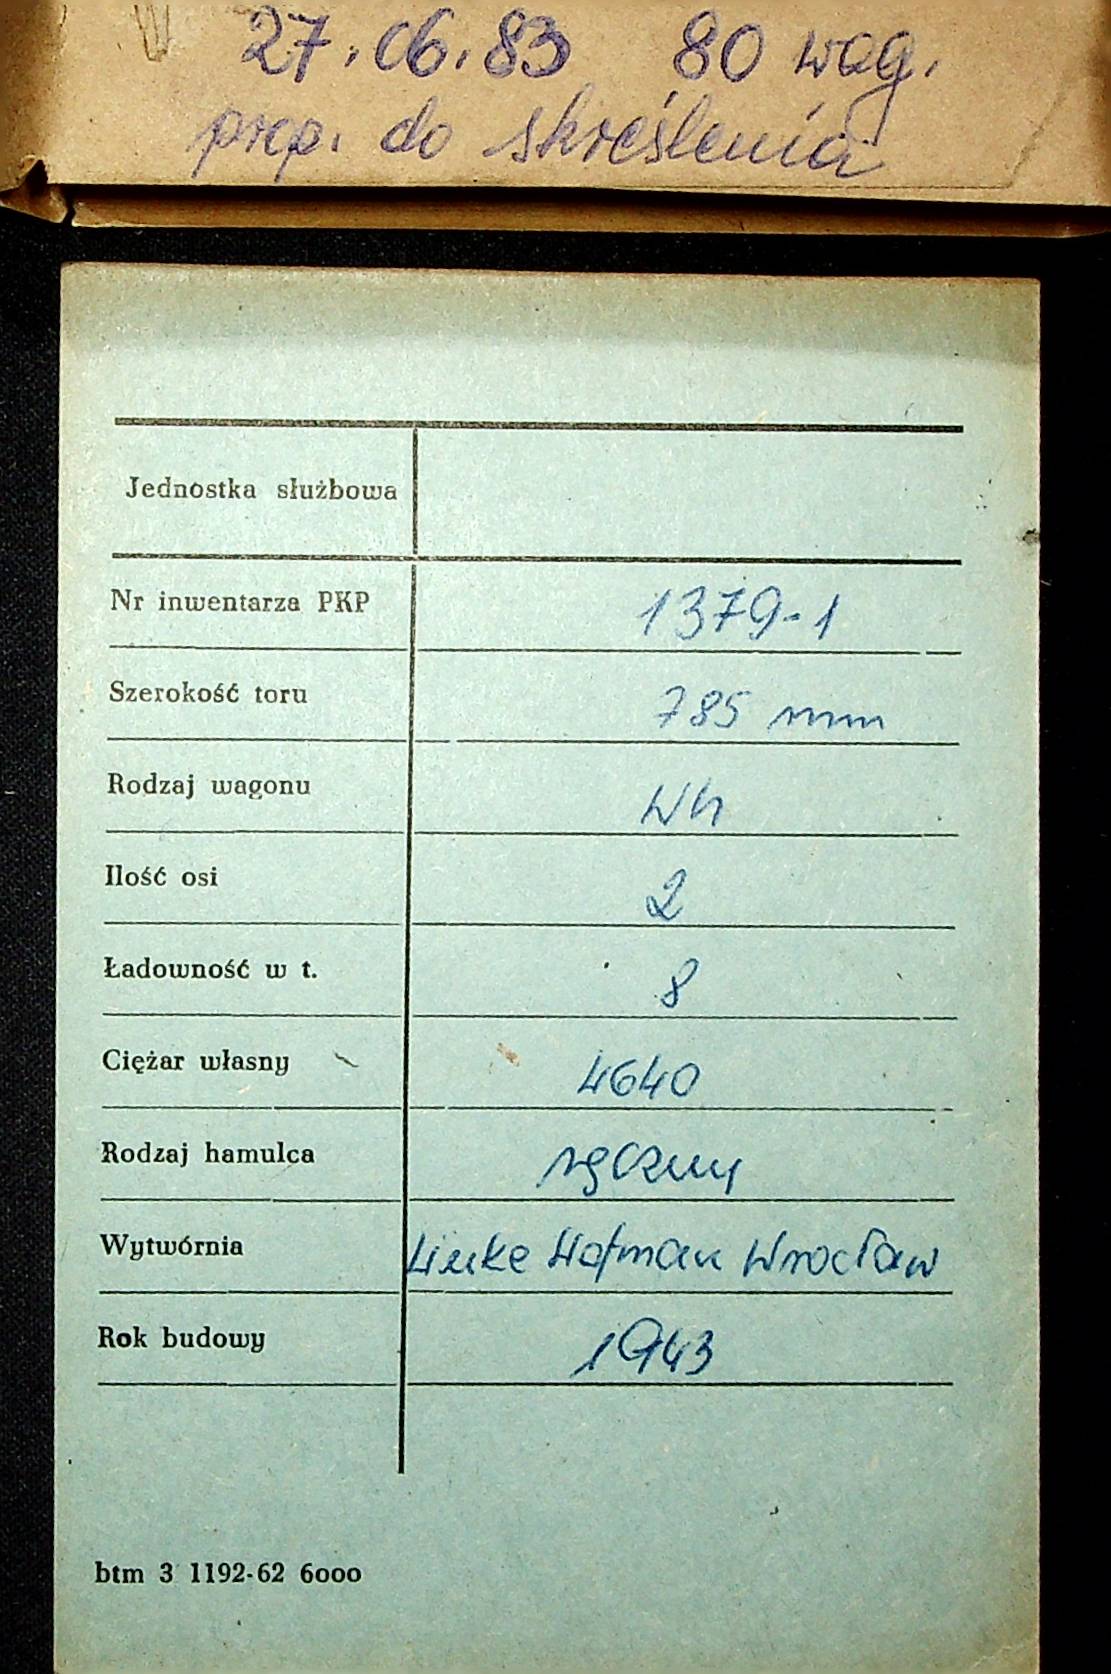 27.06.83 80 wag.
prop. do skreślenia
Jednostka służbowa
Nr inwentarza PKP 1379-1
Szerokość toru 785 mm
Rodzaj wagonu Wh
Ilość osi 2
Ładowność w t. 8
Ciężar własny 4640
Rodzaj hamulca ręczny
Wytwórnia Linke Hofman Wrocław
Rok budowy 1943
btm 3 1192-62 6000